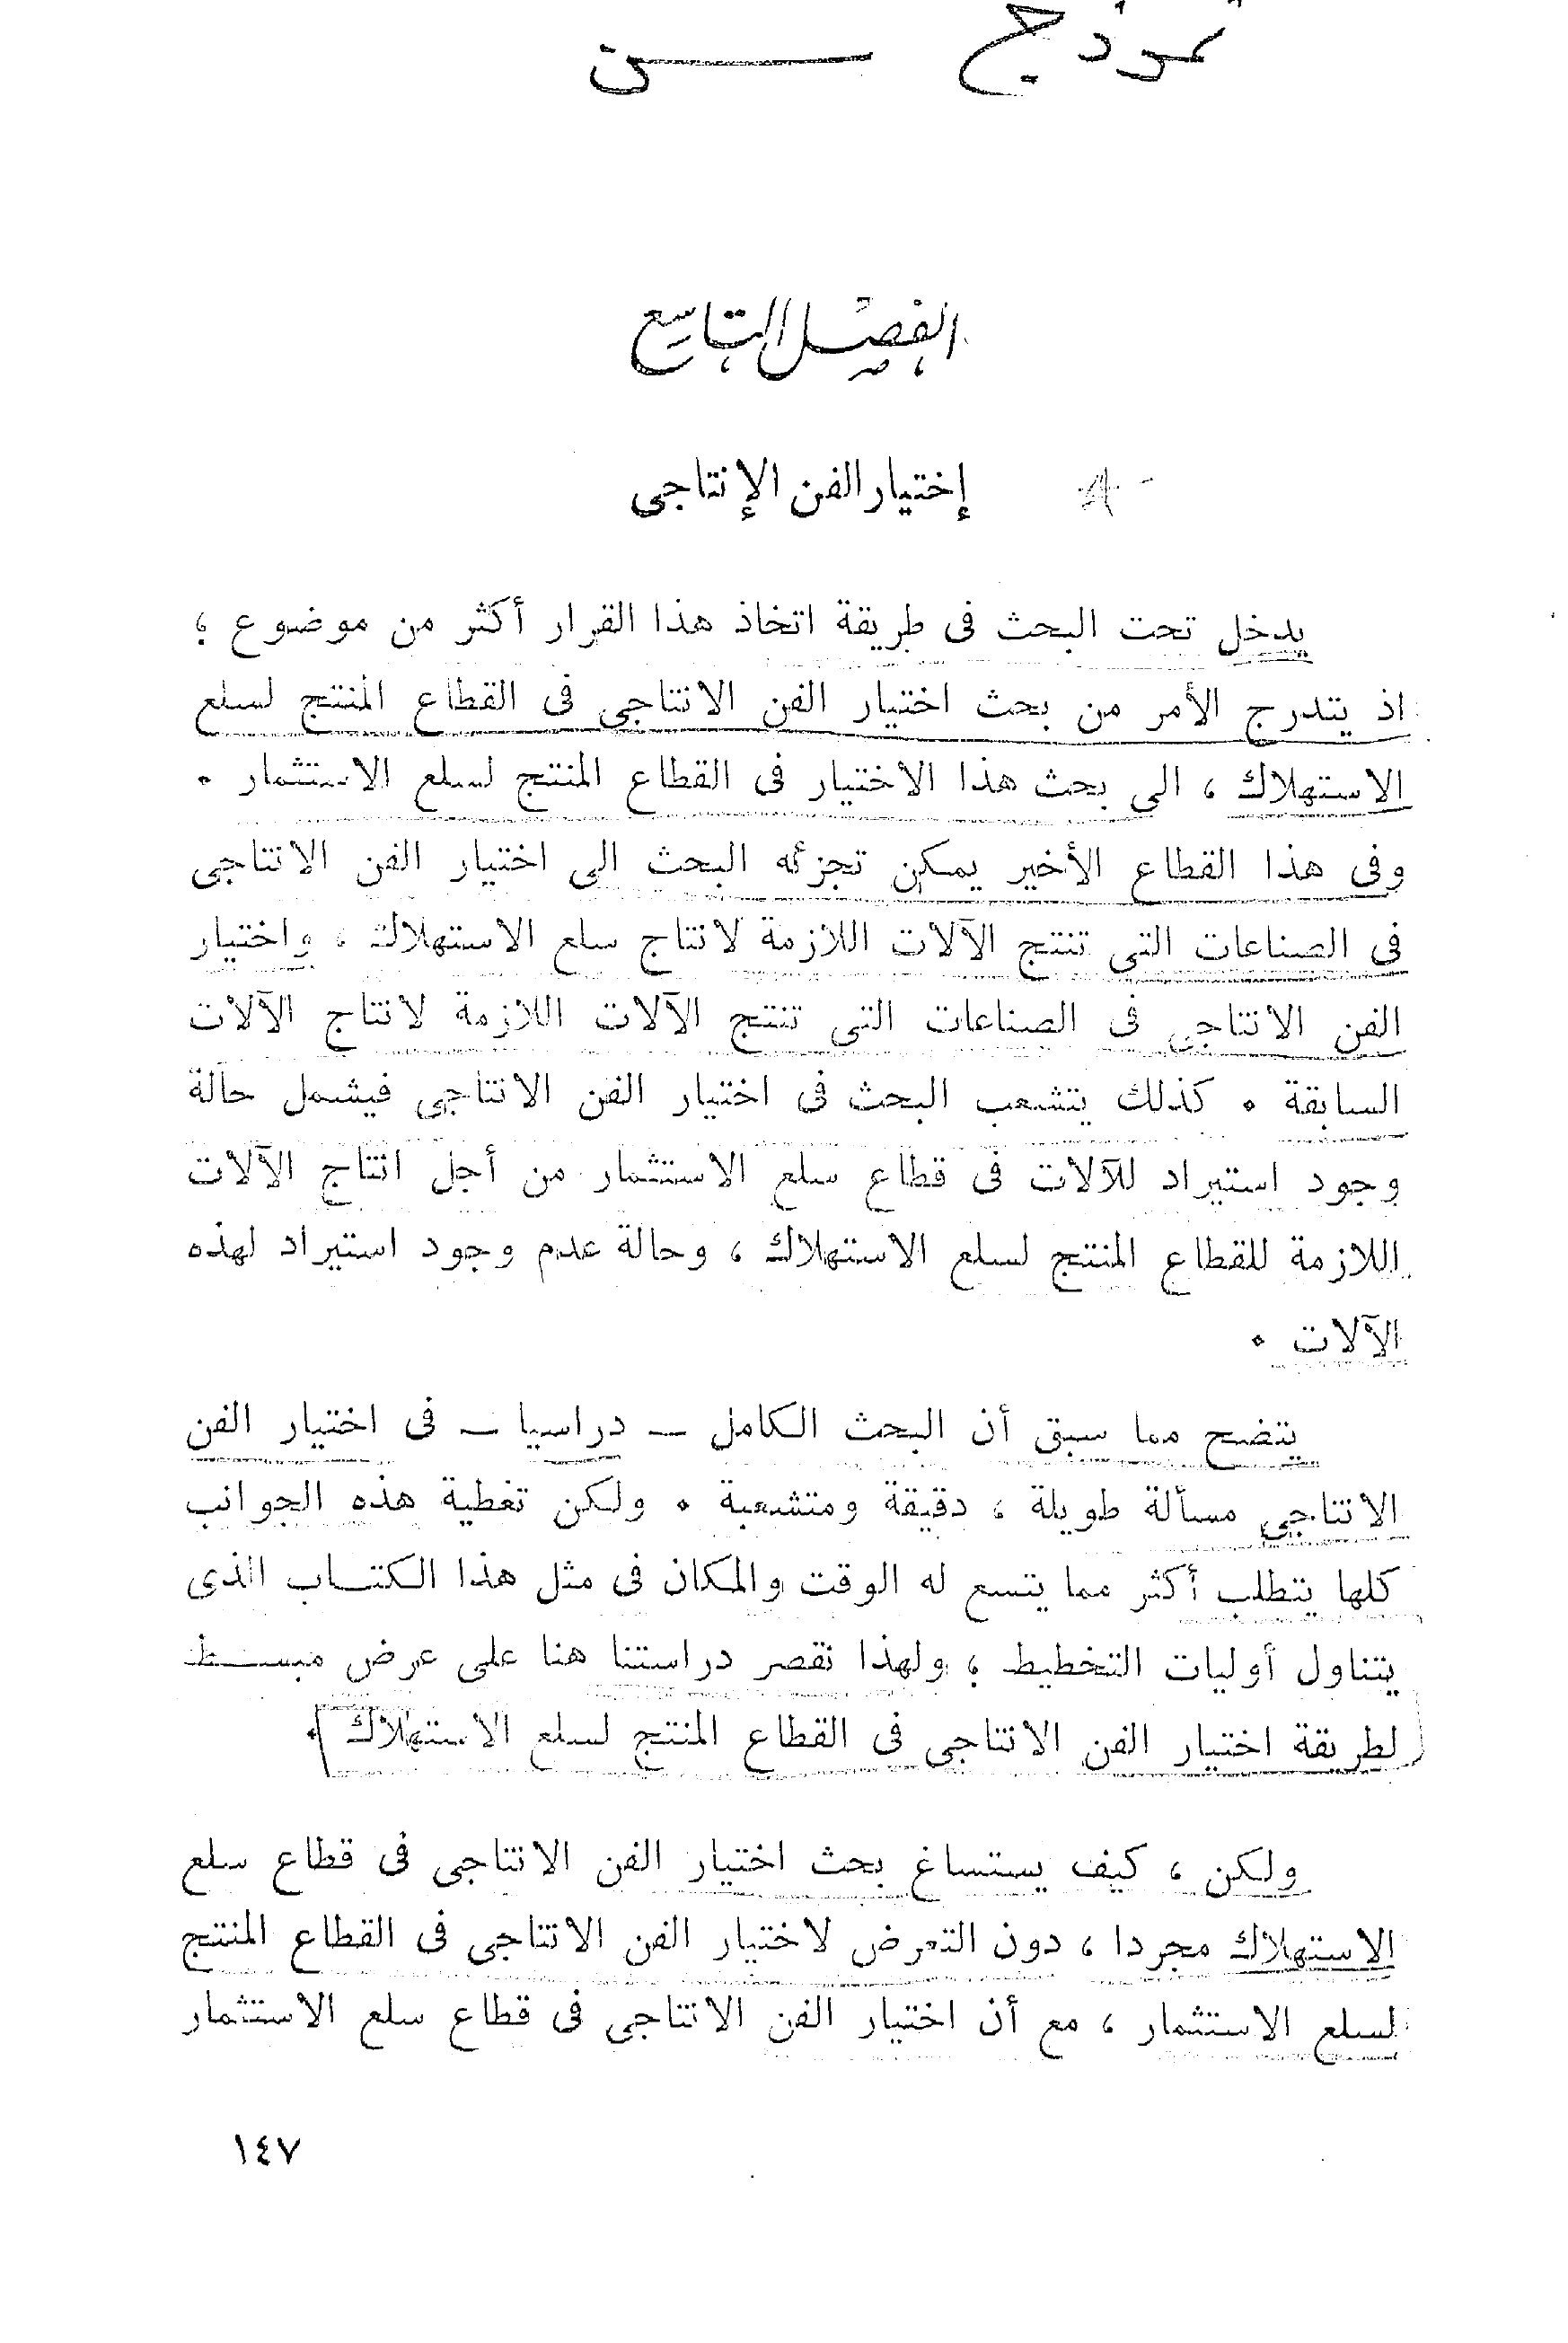 نموذج ســـن
الفصل التاسع
إختيار الفن الإنتاجى
يدخل تحت البحث فى طريقة اتخاذ هذا القرار أكثر من موضوع ؛
اذ يتدرج الأمر من بحث اختيار الفن الانتاجى فى القطاع المنتج لسلع
الاستهلاك ، الى بحث هذا الاختيار فى القطاع المنتج لسلع الاستثمار .
وفى هذا القطاع الأخير يمكن تجزئه البحث الى اختيار الفن الانتاجى
فى الصناعات التى تنتج الآلات اللازمة لانتاج سلع الاستهلاك ، واختيار
الفن الانتاجى فى الصناعات التى تنتج الآلات اللازمة لانتاج الآلات
السابقة . كذلك يتشعب البحث فى اختيار الفن الانتاجى فيشمل حالة
وجود استيراد للآلات فى قطاع سلع الاستثمار من أجل انتاج الآلات
اللازمة للقطاع المنتج لسلع الاستهلاك ، وحالة عدم وجود استيراد لهذه
الآلات .
يتضح مما سبق أن البحث الكامل — دراسيا — فى اختيار الفن
الانتاجى مسألة طويلة ، دقيقة ومتشعبة . ولكن تغطية هذه الجوانب
كلها يتطلب أكثر مما يتسع له الوقت والمكان فى مثل هذا الكتــاب الذى
يتناول أوليات التخطيط ؛ ولهذا نقصر دراستنا هنا على عرض مبســط
لطريقة اختيار الفن الانتاجى فى القطاع المنتج لسلع الاستهلاك .
ولكن ، كيف يستساغ بحث اختيار الفن الانتاجى فى قطاع سلع
الاستهلاك مجردا ، دون التعرض لاختيار الفن الانتاجى فى القطاع المنتج
لسلع الاستثمار ، مع أن اختيار الفن الانتاجى فى قطاع سلع الاستثمار
١٤٧